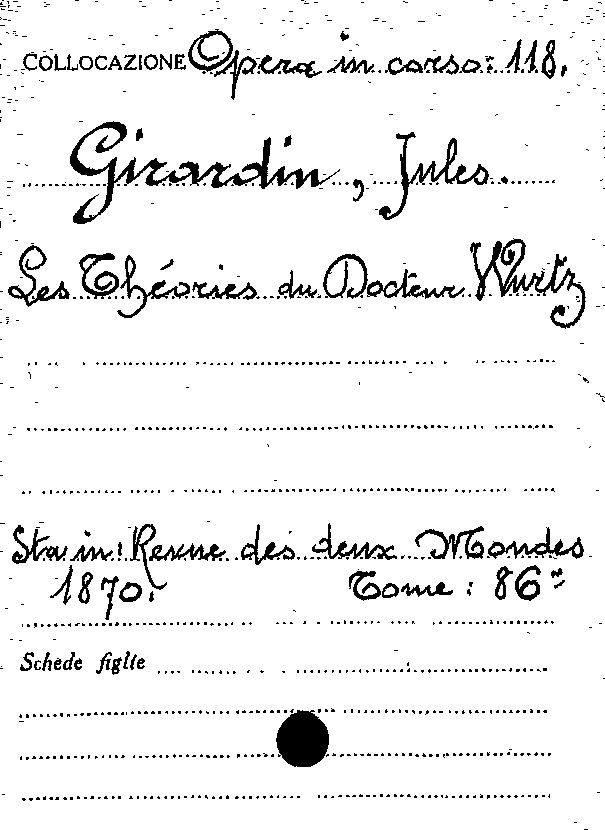 COLLOCAZIONE Opera in corso: 118.
Girardin, Jules.
Les Théories du Docteur Wurtz
Sta in: Revue des deux Mondes
1870. Tome: 86º
Schede figlie